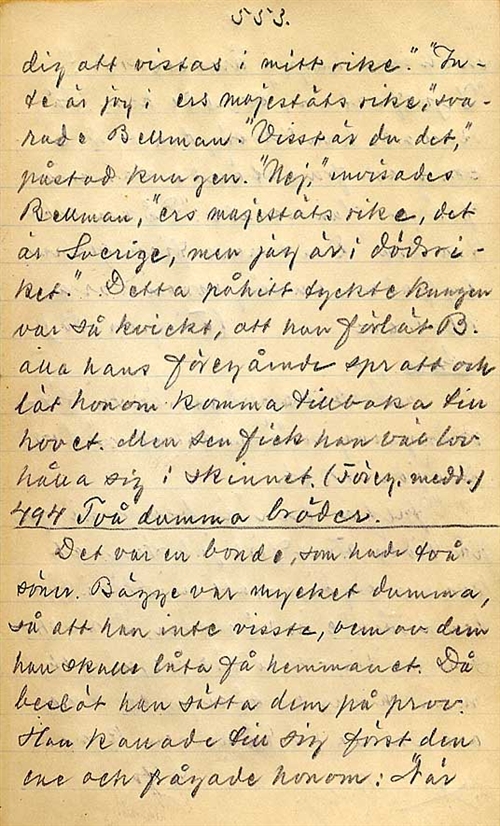 553.
dig att vistas i mitt rike." "In-
te är jag i ers majestäts rike," sva-
rade Bellman. "Visst är du det,"
påstod kungen. "Nej," invisades
Bellman, "ers majestäts rike, det
är Sverige, men jag är i dödsri-
ket." Detta påhitt tyckte kungen
var så kvickt, att han förlät B.
alla hans föregående spratt och
lät honom komma tillbaka till
hovet. Men sen fick han väl lov
hålla sig i skinnet. (Föreg. medd.)
494 Två dumma bröder.
Det var en bonde, som hade två
söner. Bägge var mycket dumma,
så att han inte visste, vem av dem
han skulle låta få hemmanet. Då
beslöt han sätta dem på prov.
Han kallade till sig först den
ene och frågade honom: "När